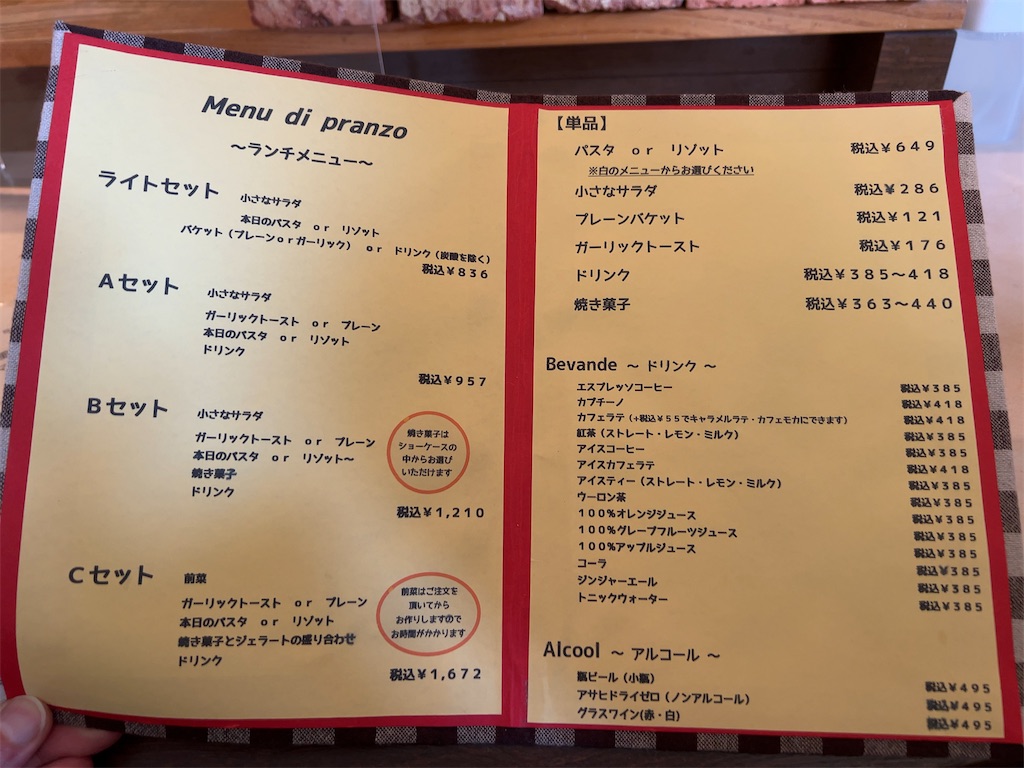 Menu di pranzo
～ランチメニュー～
ライトセット
小さなサラダ
本日のパスタ or リゾット
バケット（プレーンorガーリック） or ドリンク（炭酸を除く）
税込￥836
Aセット
小さなサラダ
ガーリックトースト or プレーン
本日のパスタ or リゾット
ドリンク
税込￥957
Bセット
小さなサラダ
ガーリックトースト or プレーン
本日のパスタ or リゾット～
焼き菓子
ドリンク
焼き菓子は
ショーケースの
中からお選び
いただけます
税込￥1,210
Cセット
前菜
ガーリックトースト or プレーン
本日のパスタ or リゾット
焼き菓子とジェラートの盛り合わせ
ドリンク
前菜はご注文を
頂いてから
お作りしますので
お時間がかかります
税込￥1,672
【単品】
パスタ or リゾット 税込￥649
※白のメニューからお選びください
小さなサラダ 税込￥286
プレーンバケット 税込￥121
ガーリックトースト 税込￥176
ドリンク 税込￥385～418
焼き菓子 税込￥363～440
Bevande ～ ドリンク ～
エスプレッソコーヒー 税込￥385
カプチーノ 税込￥418
カフェラテ（+税込￥55でキャラメルラテ・カフェモカにできます） 税込￥418
紅茶（ストレート・レモン・ミルク） 税込￥385
アイスコーヒー 税込￥385
アイスカフェラテ 税込￥418
アイスティー（ストレート・レモン・ミルク） 税込￥385
ウーロン茶 税込￥385
100%オレンジジュース 税込￥385
100%グレープフルーツジュース 税込￥385
100%アップルジュース 税込￥385
コーラ 税込￥385
ジンジャーエール 税込￥385
トニックウォーター 税込￥385
Alcool ～ アルコール ～
瓶ビール（小瓶） 税込￥495
アサヒドライゼロ（ノンアルコール） 税込￥495
グラスワイン(赤・白) 税込￥495